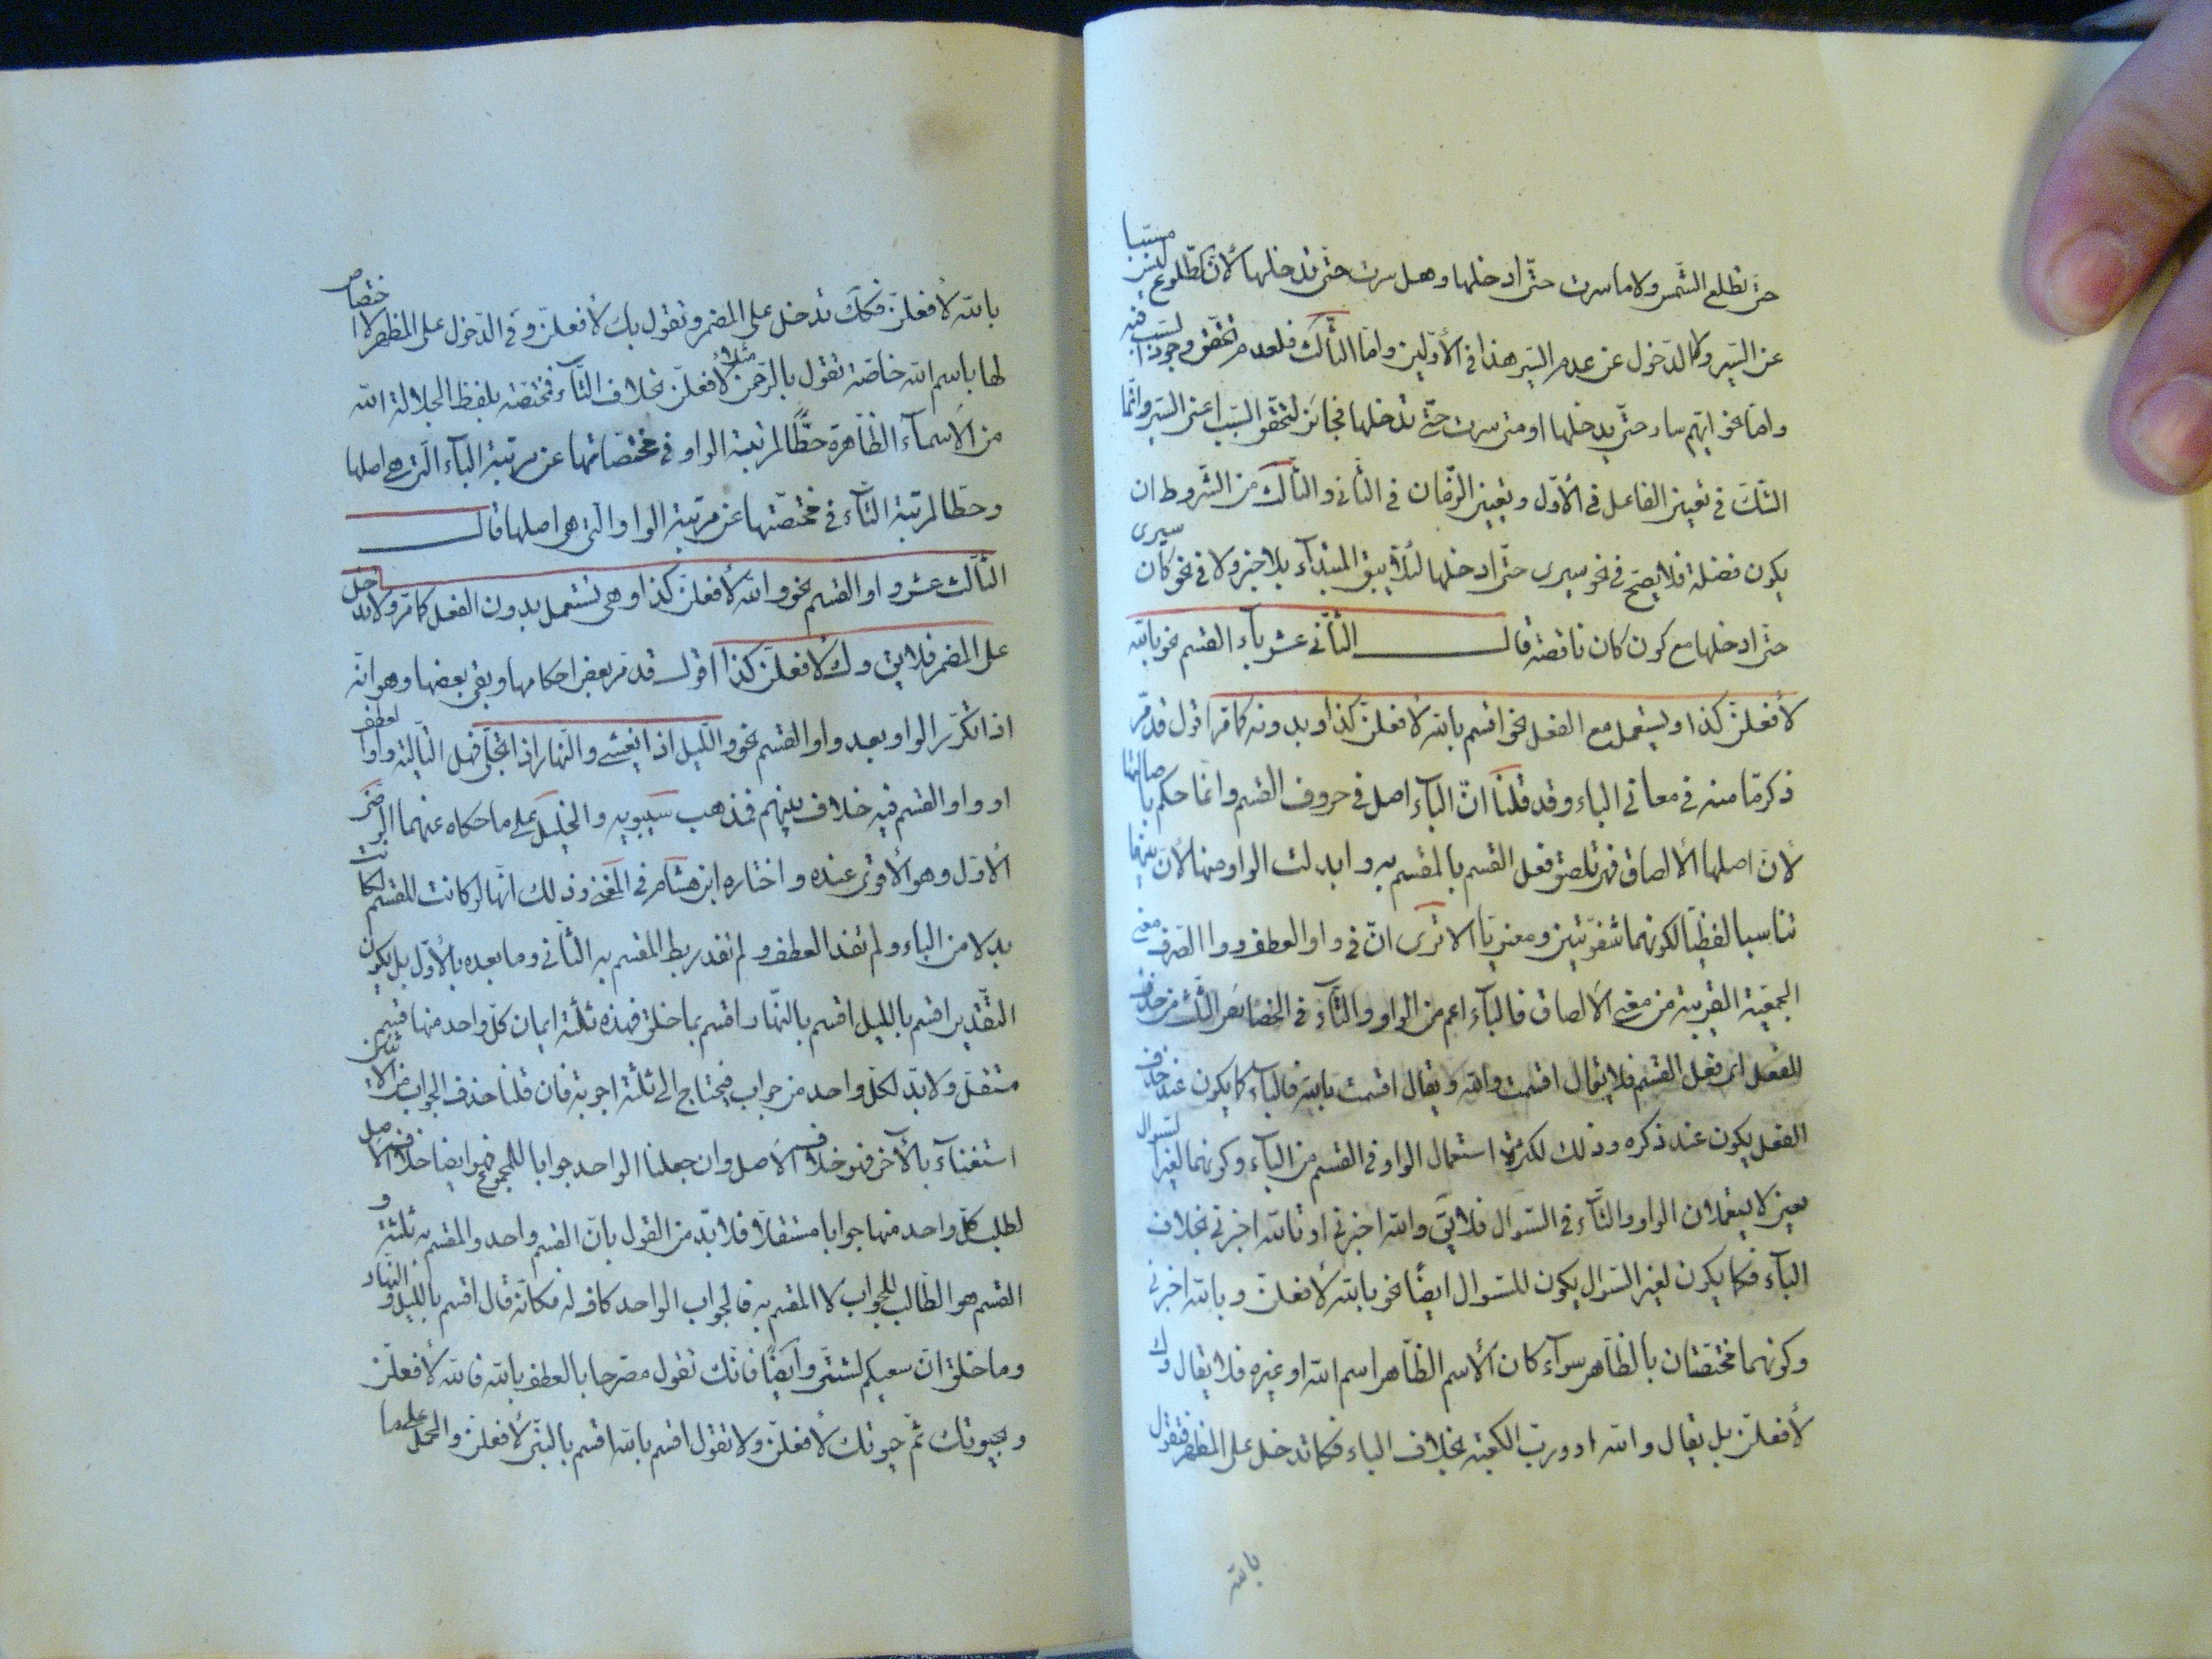 حتى تطلع الشمس ولا ما سرت حتى ادخلها وهل سرت حتى تدخلها لأن الطلوع ليس مسببا
عن السير ولا الدخول عن عدم السير هذا فى الأولين واما الثالث فلعدم تحقق وجود السبب فيه
واما نحو ايهم سار حتى يدخلها او متى سرت حتى تدخلها فجائز لتحقق السبب اعنى السير وانما
الشك فى تعيين الفاعل فى الأول وتعيين الزمان فى الثانى والثالث من الشروط ان
يكون فضلة فلا يصح فى نحو سيرى حتى ادخلها لئلا يبقى المبتدأ بلا خبر ولا فى نحو كان سيرى
حتى ادخلها مع كون كان ناقصة قال الثانى عشر باء القسم نحو بالله
لأفعلن كذا ويستعمل مع الفعل نحو اقسم بالله لأفعلن كذا وبدونه كما مر اقول قد مر
ذكر ما منه فى معانى الباء وقد قلنا ان الباء اصل فى حروف القسم وانما حكم باصالتها
لأن اصلها الألصاق فهى تلصق فعل القسم بالمقسم به وابدلت الواو منها لأن بينهما
تناسبا لفظيا لكونهما شفويتين ومعنويا الا ترى ان فى واو العطف وواو الصرف معنى
الجمعية القريبة من معنى الالصاق فالباء اعم من الواو والتاء فى الخصائص الثلث من حذف
الفعل اى فعل القسم فلا يقال اقسمت والله ويقال اقسمت بالله فالباء كما يكون عند حذف
الفعل يكون عند ذكره وذلك لكثرة استعمال الواو فى القسم من الباء وكونهما لغير السؤال
يعنى لا يستعملان الواو والتاء فى السؤال فلا يق والله اخبرنى او تالله اخبرنى بخلاف
الباء فكما يكون لغير السؤال يكون للسؤال ايضا نحو بالله لأفعلن وبالله اخبرنى
وكونهما مختصتان بالظاهر سواء كان الأسم الظاهر اسم الله او غيره فلا يقال وك
لأفعلن بل يقال والله او ورب الكعبة بخلاف الباء فكما تدخل على المظهر فتقول
بالله
بالله لأفعلن فكك تدخل على المضمر وتقول بك لأفعلن وفى الدخول على المظهر لا اختصاص
لها باسم الله خاصة تقول بالرحمن مثلا لأفعلن بخلاف التاء فمختصة بلفظ الجلالة الله
من الاسماء الظاهرة حطا لمرتبة الواو فى مختصاتها عن مرتبة الباء التى هى اصلها
وحطا لمرتبة التاء فى مختصتها عن مرتبة الواو التى هو اصلها قال
الثالث عشر واو القسم نحو والله لأفعلن كذا وهى تستعمل بدون الفعل كما مر ولا تدخل
على المضمر فلا يق وك لأفعلن كذا اقول قد مر بعض احكامها وبقى بعضها وهو انه
اذا تكرر الواو بعد واو القسم نحو والليل اذا يغشى والنهار اذا تجلى فهل الثانية واو العطف
او واو القسم فيه خلاف بينهم فذهب سيبويه والخليل على ما حكاه عنهما الرضى
الأول وهو الأقوى عنده واختاره ابن هشام فى المغنى وذلك انها لو كانت للقسم لكانت
بدلا من الباء ولم تفد العطف ولم تفد ربط المقسم به الثانى وما بعده بالأول بل يكون
التقدير اقسم بالليل اقسم بالنهار اقسم بما خلق فهذه ثلثة ايمان كل واحد منها قسم
مستقل ولا بد لكل واحد من جواب فيحتاج الى ثلثة اجوبة فان قلنا حذف الجواب من الاثنين
استغناء بالآخر فهو خلاف الاصل وان جعلنا الواحد جوابا للمجموع فهو ايضا خلاف الاصل
لطلب كل واحد منها جوابا مستقلا فلا بد من القول بان القسم واحد والمقسم به ثلثة و
القسم هو الطالب للجواب لا المقسم به فالجواب الواحد كاف له فكانه قال اقسم بالليل والنهار
وما خلق ان سعيكم لشتى وايضا فانك تقول مصرحا بالعطف بالله فالله لأفعلن
وبحيوتك ثم حيوتك لأفعلن ولا تقول اقسم بالله اقسم بالنبى لأفعلن والحمل على ما